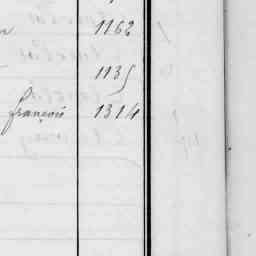 1162
1135
françois 1314